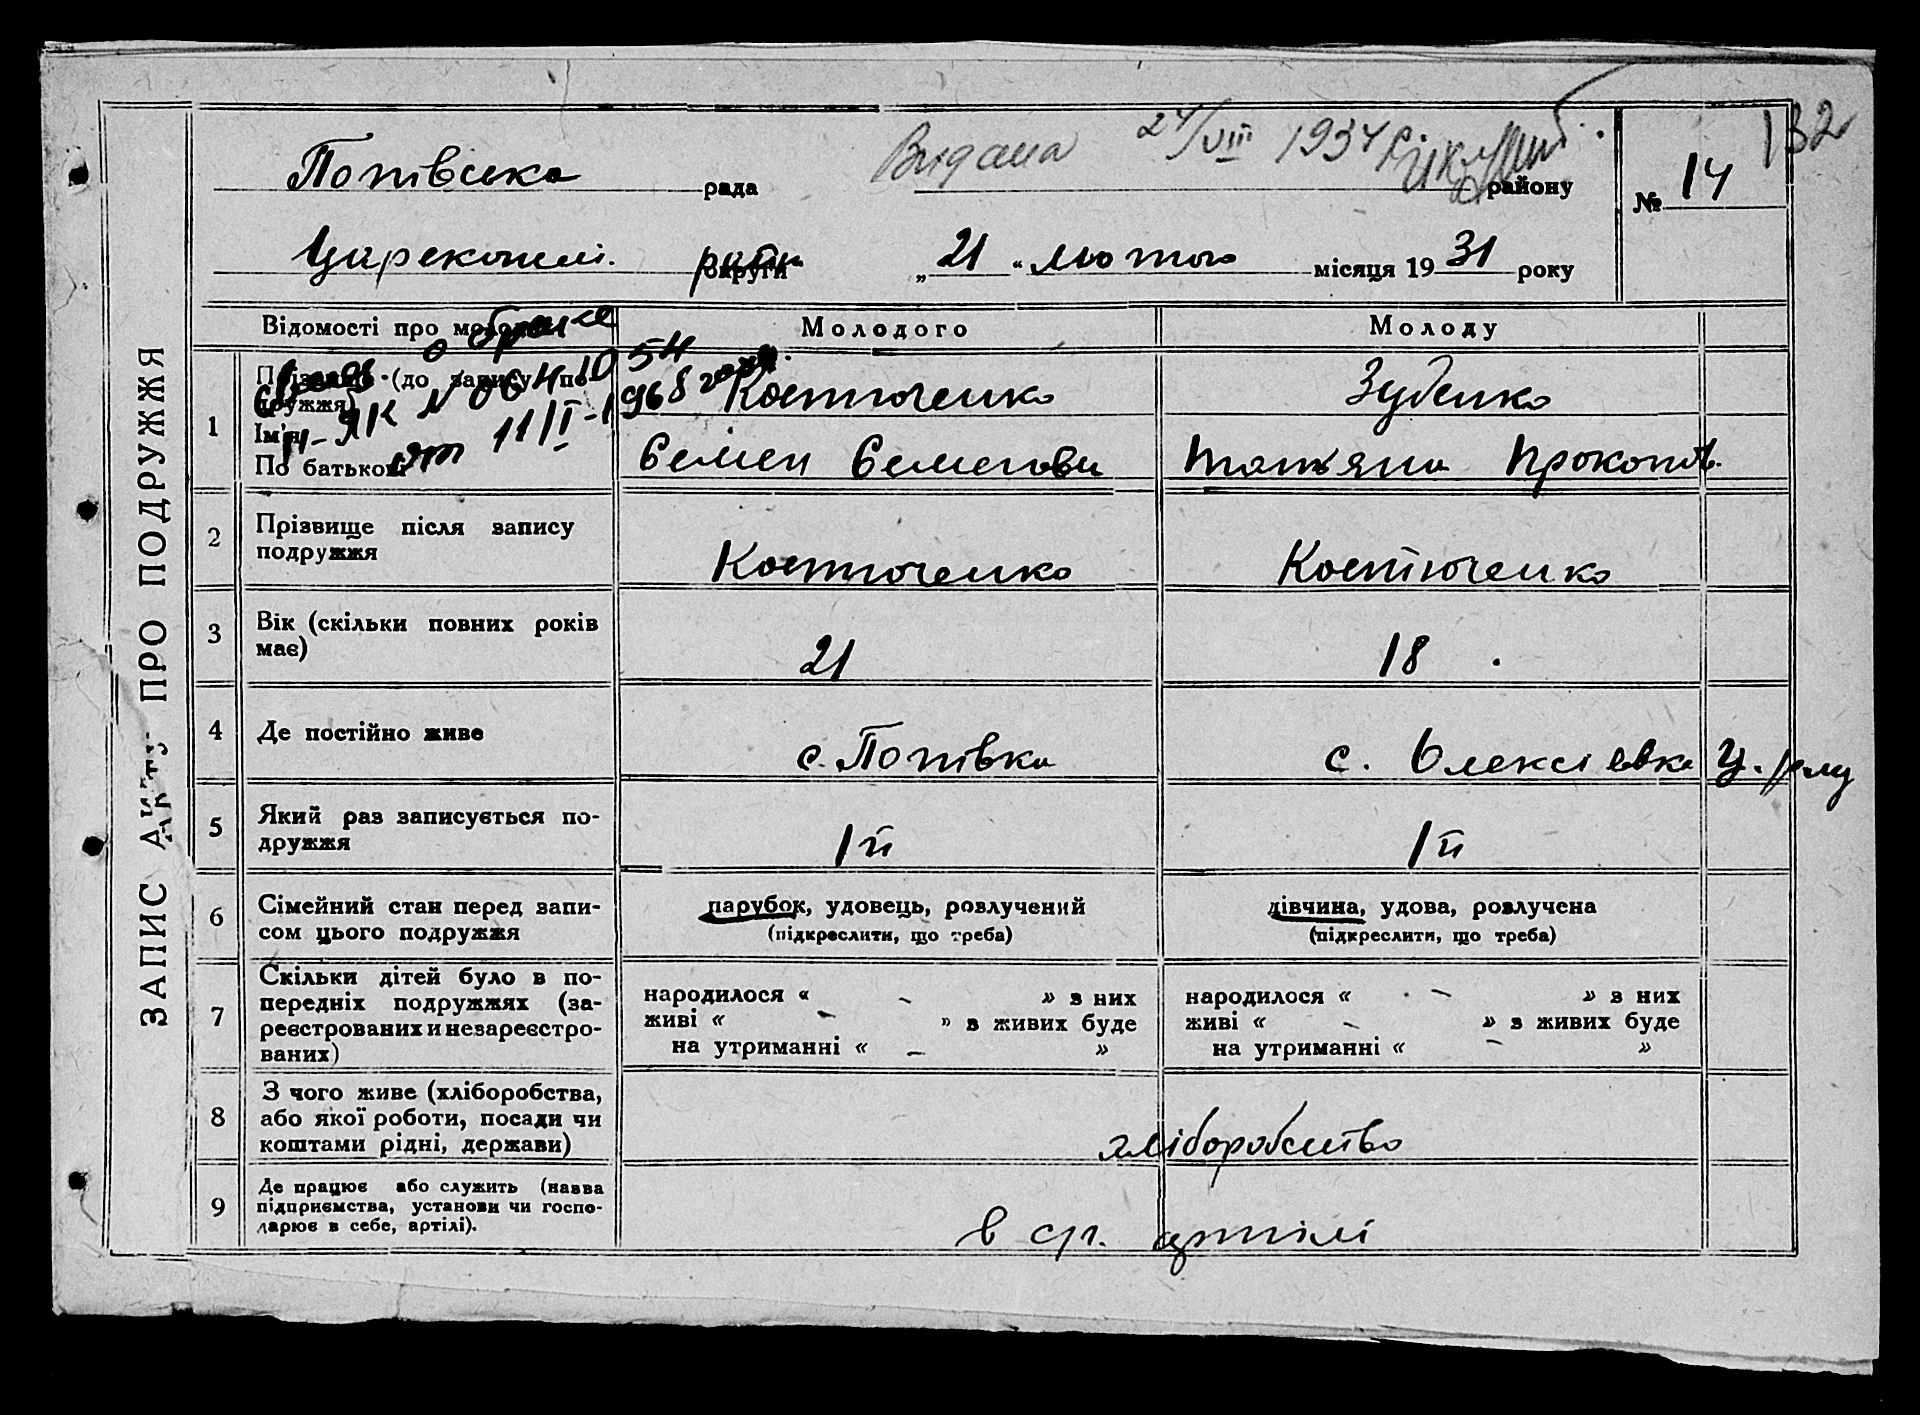 132
Видана 24/VIII 1934 р.
Попівська рада району № 14
Царекона округи „ 21 “ лютого місяця 19 31 року
ЗАПИС АКТУ ПРО ПОДРУЖЖЯ
Відомості про Молодого Молоду
о браке
1 Прізвище (до запису по-дружжя) Костюченко Зубенко
Ім'я
По батькові Семен Семенови Татьяна Прокопов.
II-ЯК № 064 10 54
от 11/II-1968 года.
2 Прізвище після запису
подружжя Костюченко Костюченко
3 Вік (скільки повних років
має) 21 18
4 Де постійно живе с. Попівка с. Олексіевка Ц.
5 Який раз записується по-
дружжя 1й 1й
6 Сімейний стан перед запи-
сом цього подружжя
парубок, удовець, розлучений
(підкреслити, що треба)
дівчина, удова, розлучена
(підкреслити, що треба)
7 Скільки дітей було в по-
передніх подружжях (за-
реєстрованих и незареєстро-
ваних)
народилося « - » з них
живі « - » в живих буде
на утриманні « - »
народилося « - » з них
живі « - » в живих буде
на утриманні « - »
8 З чого живе (хліборобства,
або якої роботи, посади чи
коштами рідні, держави)
хліборобство
9 Де працює або служить (назва
підприємства, установи чи госпо-
дарює в себе, артілі).
в с/г. артілі